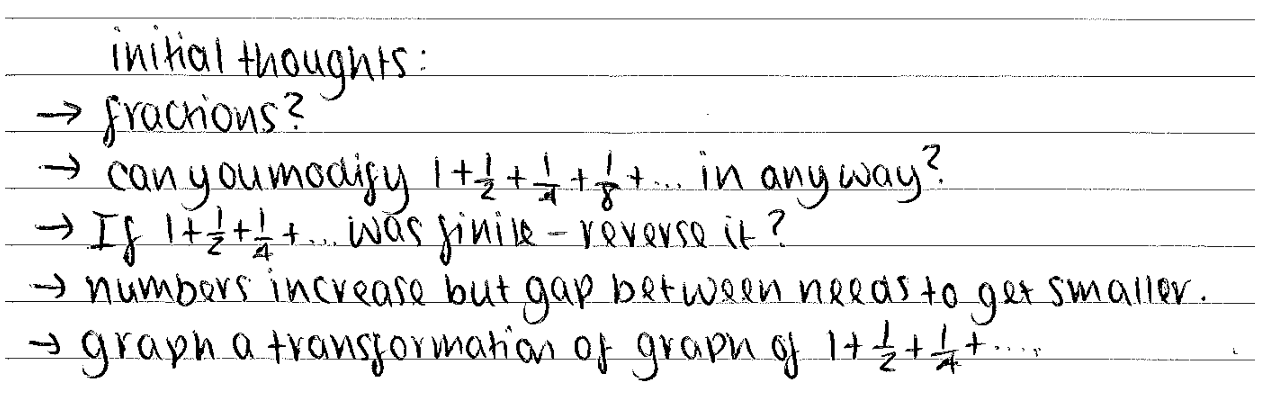 initial thoughts:
→ fractions?
→ can you modify 1 + 1/2 + 1/4 + 1/8 + ... in any way?
→ If 1 + 1/2 + 1/4 + ... was finite - reverse it?
→ numbers increase but gap between needs to get smaller.
→ graph a transformation of graph of 1 + 1/2 + 1/4 + ....